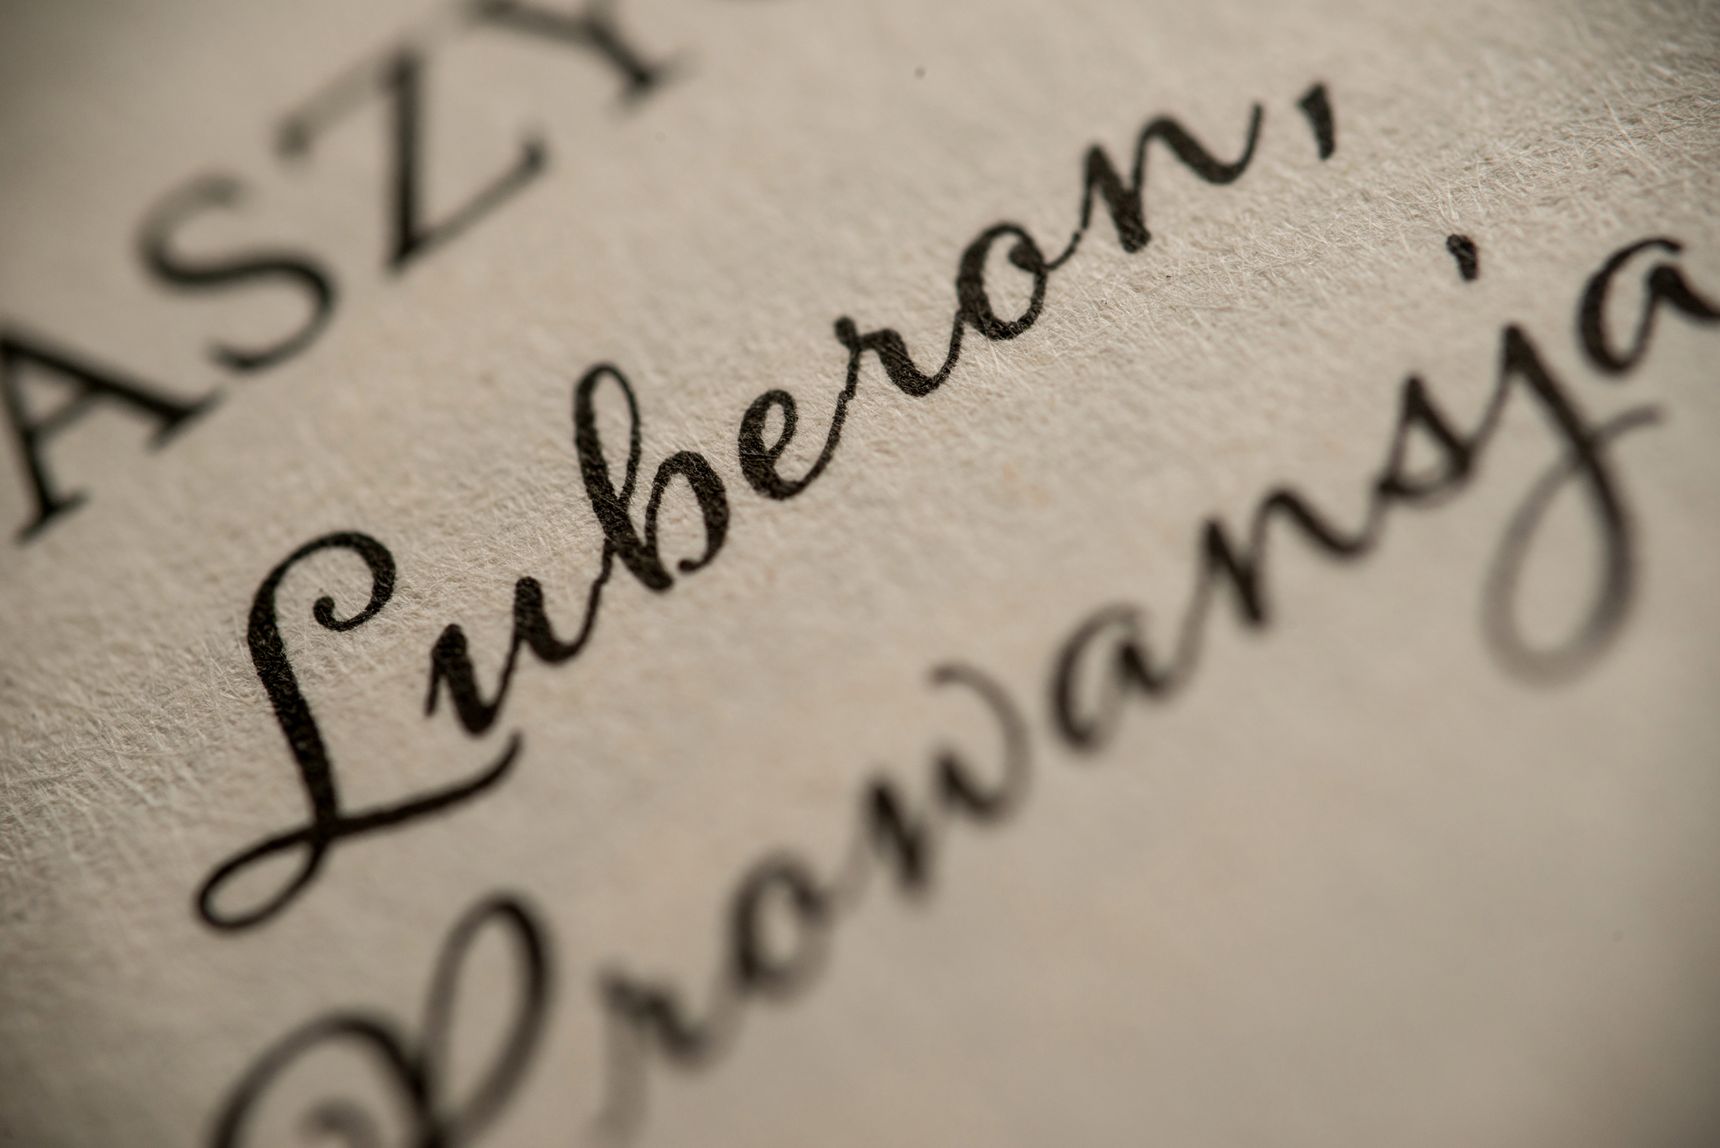 ASZY
Luberon,
Prowansja